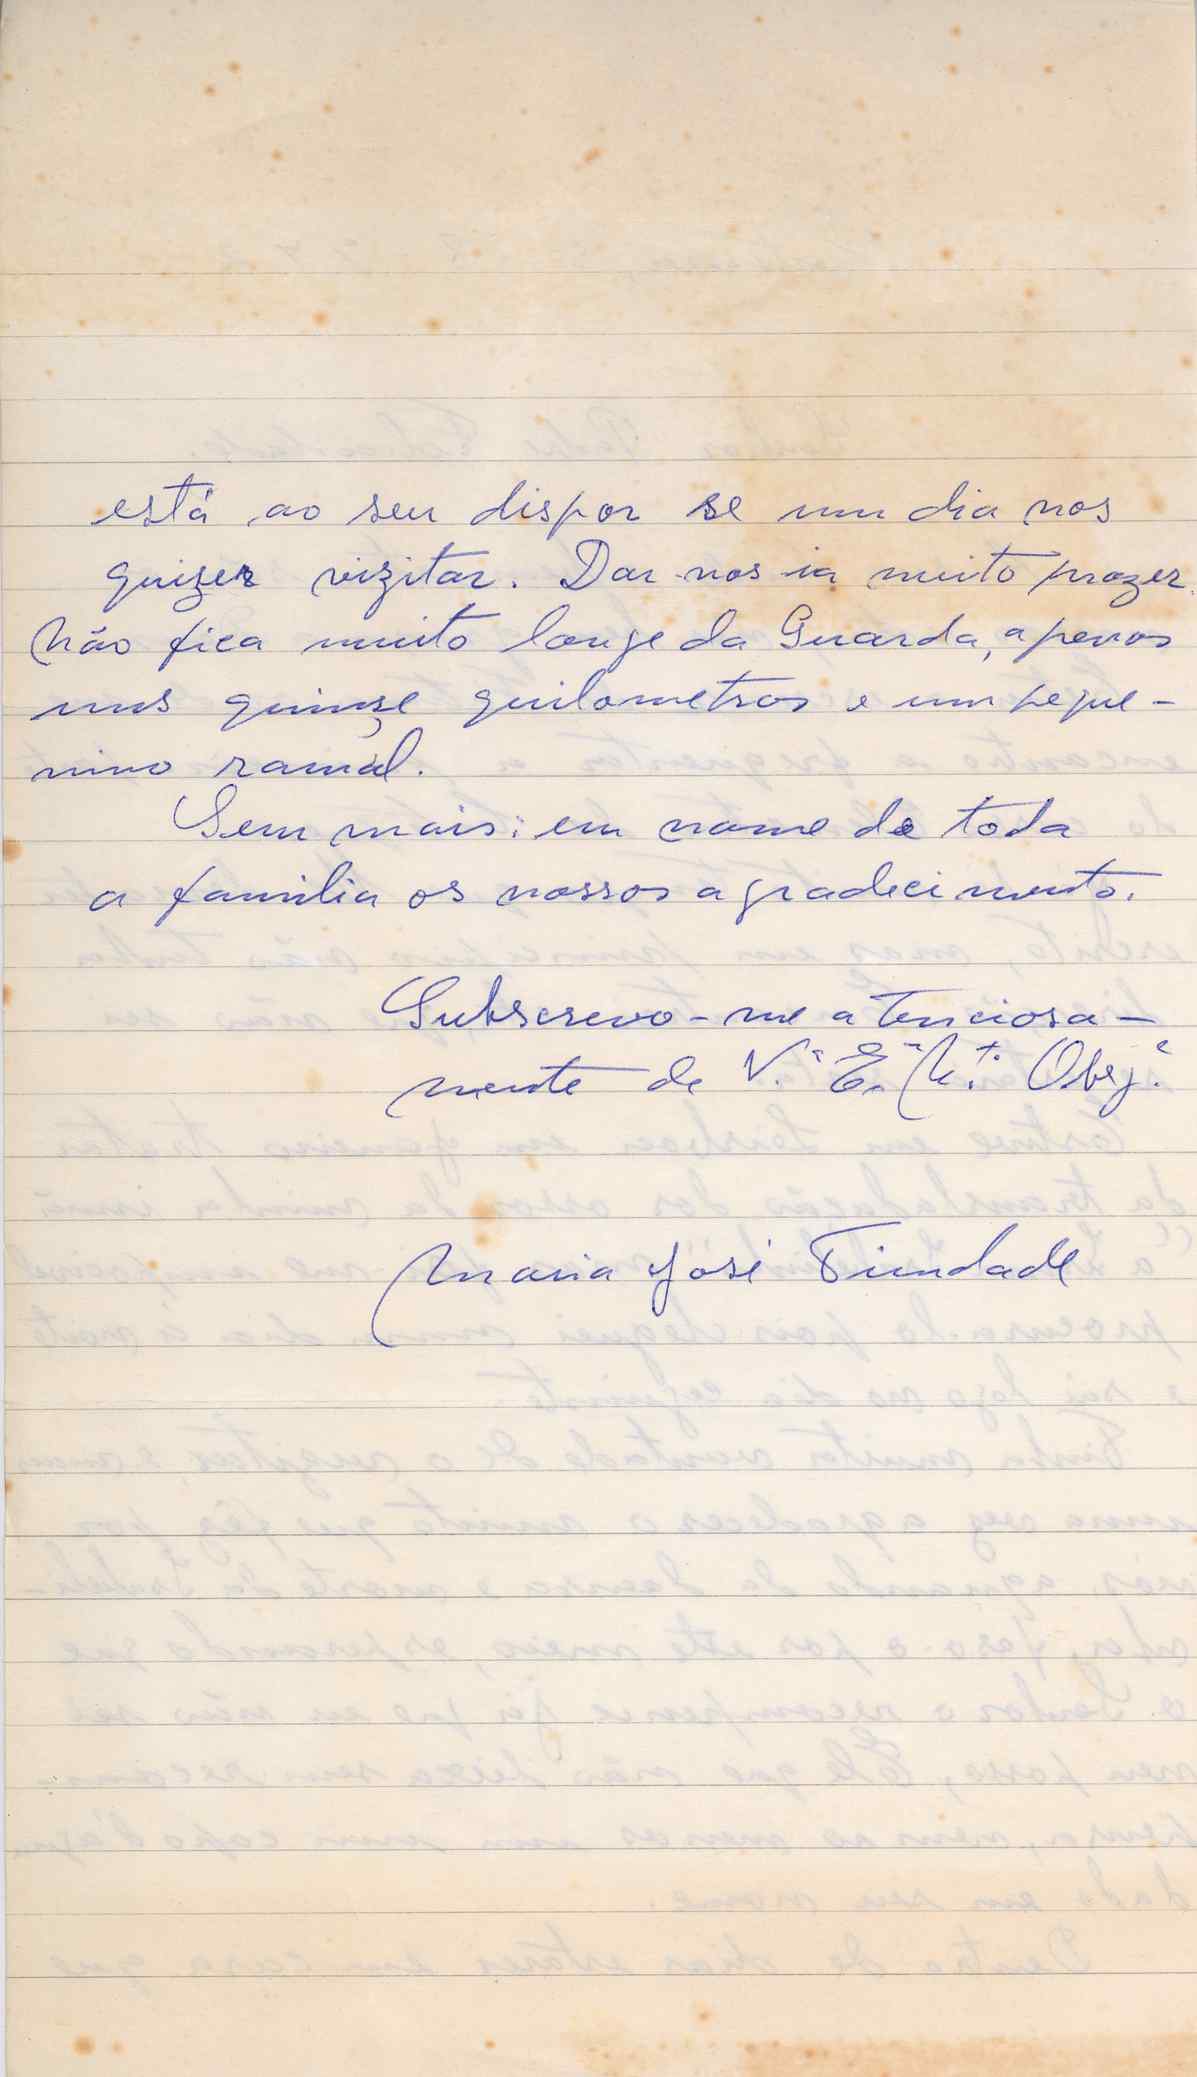 está ao seu dispor se um dia nos
quizer vizitar. Dar-nos-ia muito prazer.
Não fica muito longe da Guarda, apenas
uns quinze quilometros e um peque-
nino ramal.
Sem mais: em nome de toda
a familia os nossos agradecimento.
Subscrevo-me atenciosa-
mente de V.ª E.ª M.to Obrg.ª
Maria José Trindade